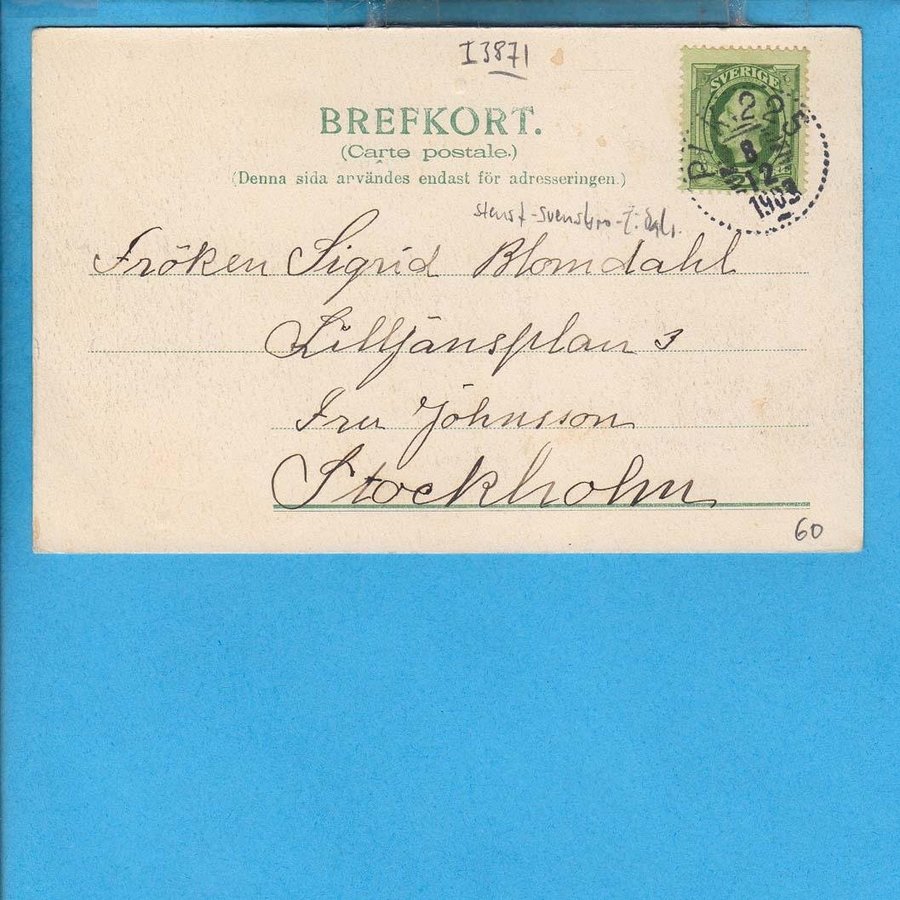 I3871
SVERIGE
BREFKORT.
(Carte postale.)
(Denna sida användes endast för adresseringen.)
8
12
1903
Fröken Sigrid Blomdahl
Lilljansplan 3
Fru Johnsson
Stockholm
60